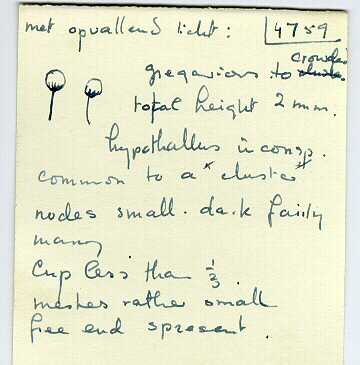 met opvallend licht : 4759
gregarious to crowded
total height 2 mm.
hypothallus inconsp.
common to a cluster
nodes small. dark fairly
many
Cup less than 1/3.
meshes rather small
free ends present.